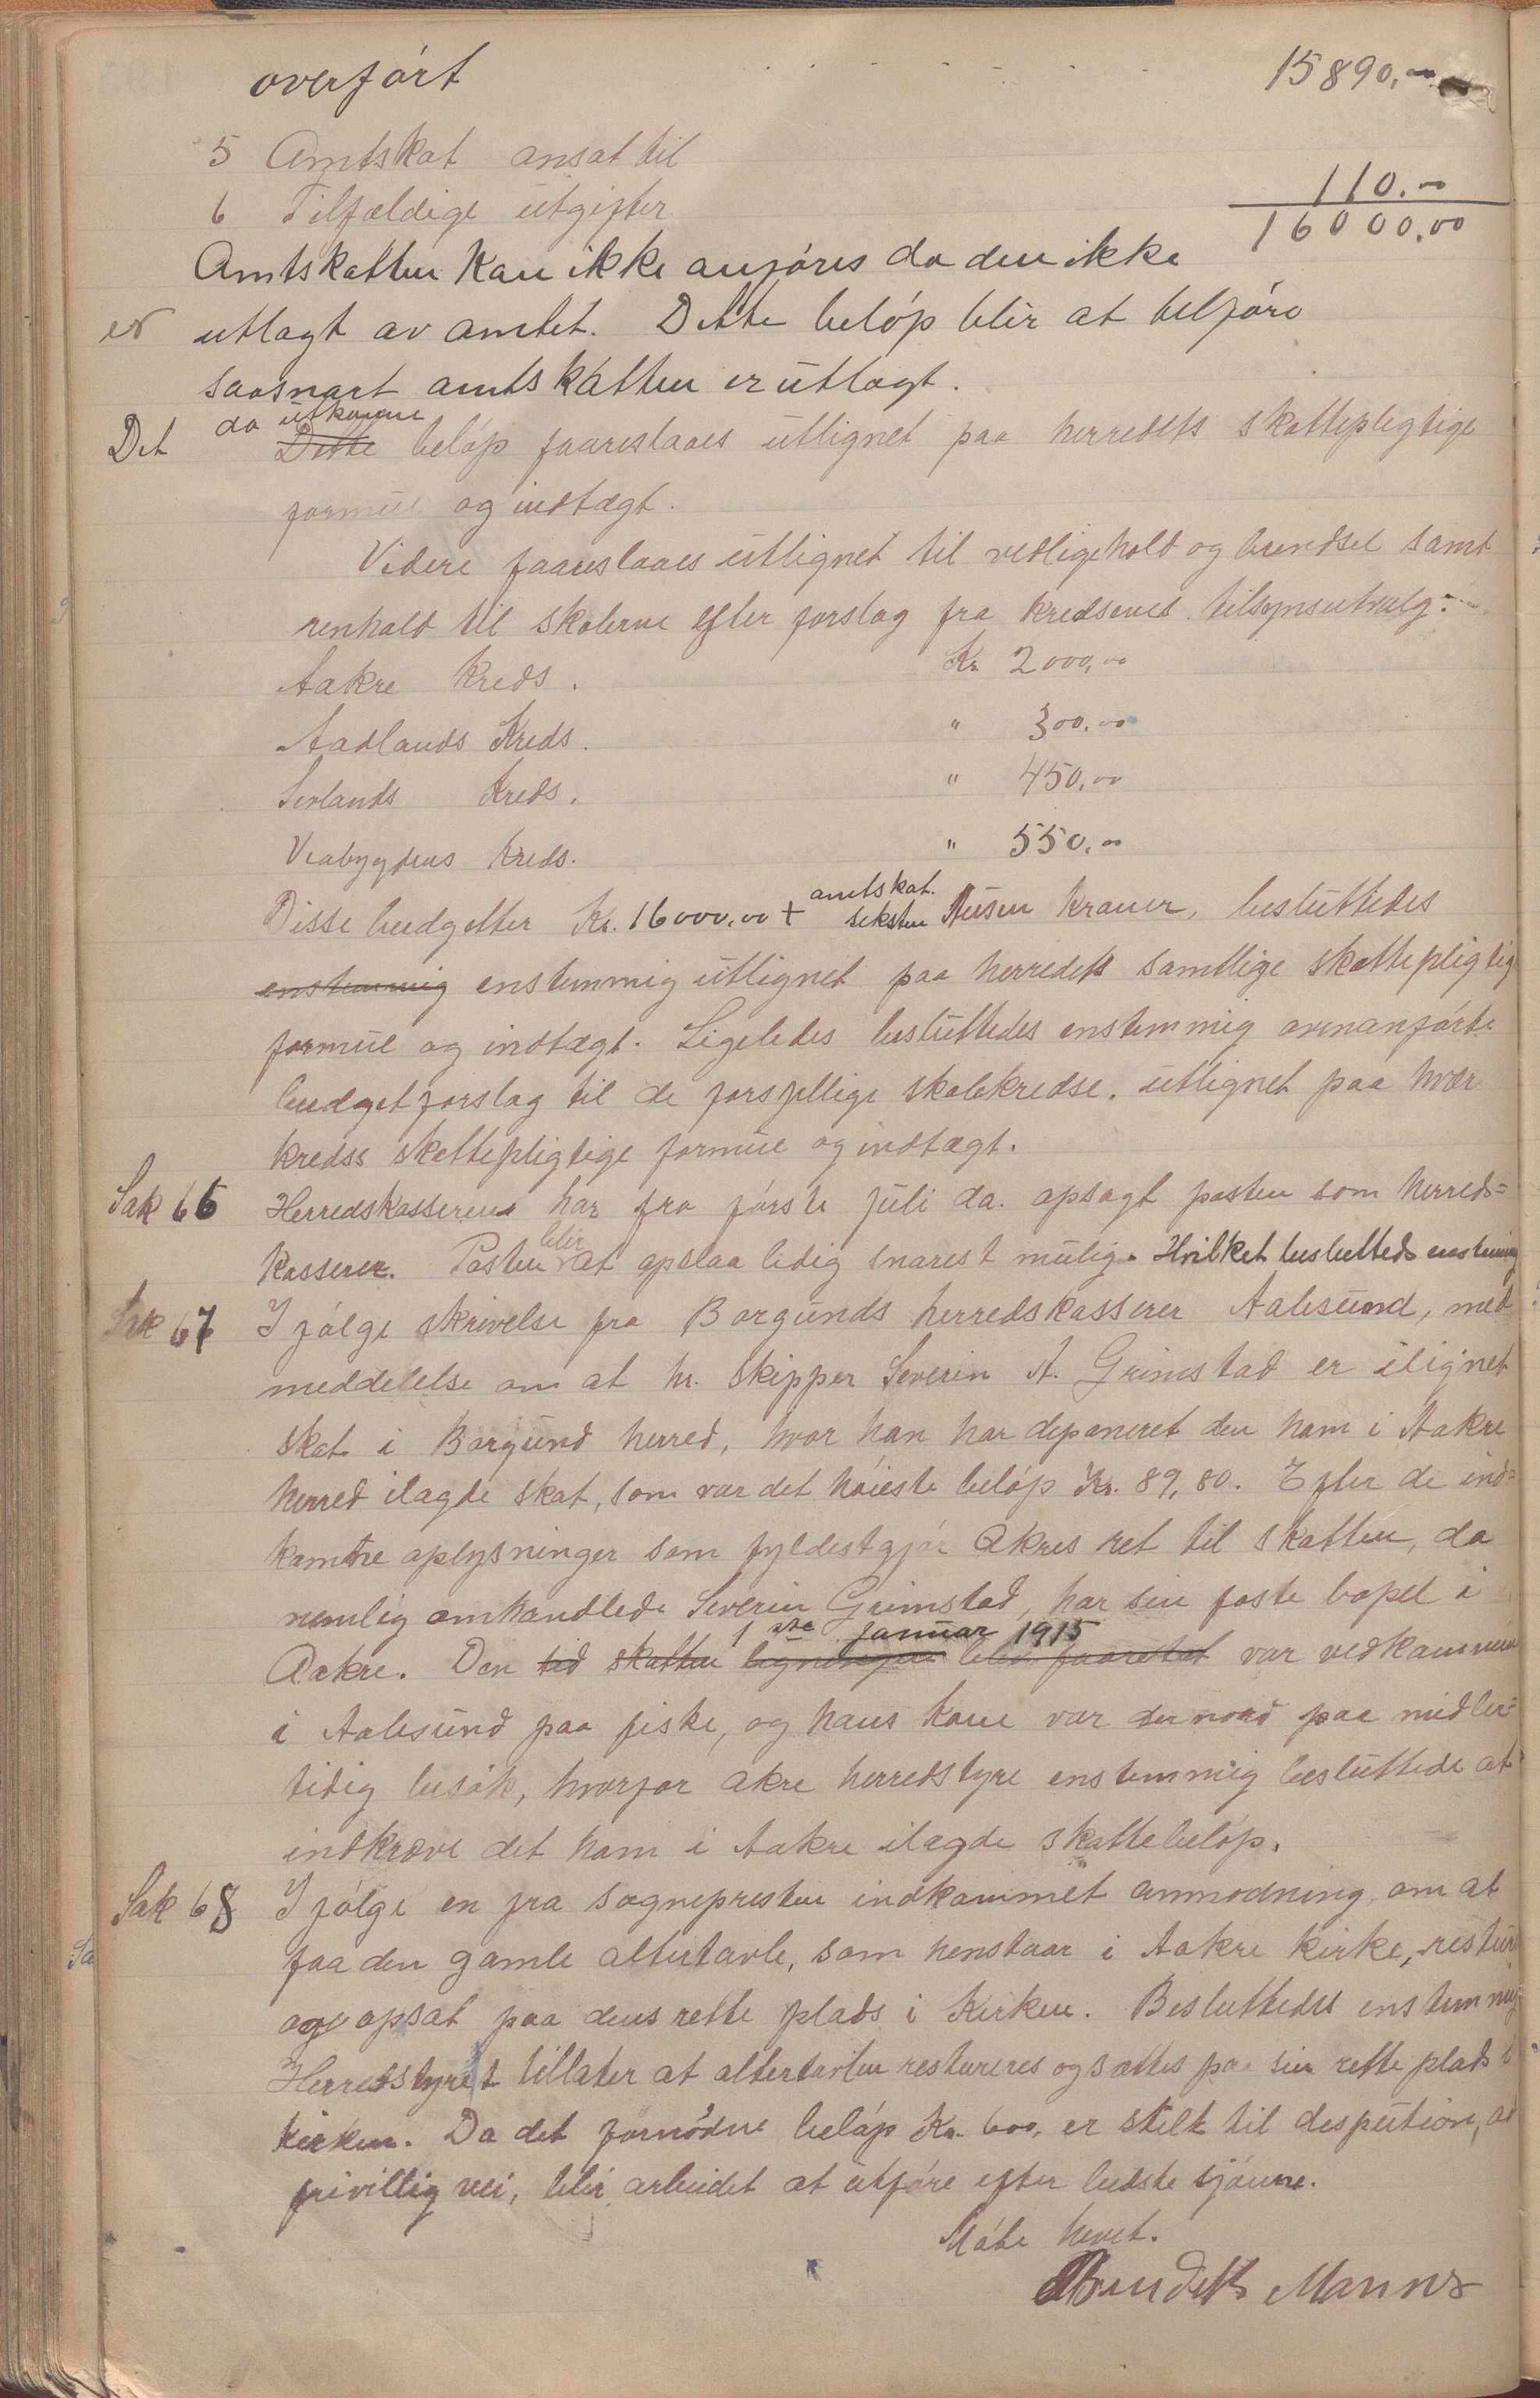 overført 15890,00
5 Amtskat ansat til
6 Tilfældige utgifter 110.00
16000,00
Amtskatten kan ikke anføres da den ikke
er utlagt av amtet. Dette beløp blir at tilføre
saasnart amtskatten er utlagt.
Det da utkomne
Dette beløp foareslaaes utlignet paa herredets skattepligtige
formue og indtægt.
Videre foareslaaes utlignet til vedligehold og brendsel samt
renhold til skolerne efter forslag fra kredsenes tilsynsutvalg:
Aakre Kreds. Kr. 2000,00
Aadlands Kreds. " 300,00
Sevlands Kreds. " 450,00
Veabygdens Kreds. " 550,00
amtskat.
Disse budgetter Kr. 16000,00 + seksten tusen kroner, besluttedes
enstemmig enstemmig utlignet paa herredets samtlige skattepligtig
formue og indtægt. Ligeledes besluttedes enstemmig ovenanførte
budgetforslag til de forsjellige skolekredse, utlignet paa hver
kredss skattepligtige formue og indtægt.
Sak 66 Herredskasserens har fra første juli da. opsagt posten som herreds=
blir
kasserer. Posten at opslaa ledig snarest mulig. Hvilket besluttedes enstemmig
Sak 67 Ifølge skrivelse fra Borgunds herredskasserer Aalesund, med
meddelelse om at hr. skipper Severin A. Grimstad er ilignet
skat i Borgund herred, hvor han har deponeret den ham i Aakre
herred ilagde skat, som var det høieste beløp Kr. 89,80. Efter de ind=
komne oplysninger som fyldestgjør Akres ret til skatten, da
nemlig omhandlede Severin Grimstad, har sin faste bopel i
1 ste Januar 1915
Aakre. Den tid skatten ligningen blev foaretat var vedkommen
i Aalesund paa fiske, og hans kone var der nord paa midler=
tidig besøk, hvorfor Akre herredstyre enstemmig besluttede at
indkræve det ham i Aakre ilagde skattebeløp.
Sak 68 Ifølge en fra sognepresten indkommet anmodning, om at
faa den gamle altertavle, som henstaar i Aakre kirke, restur
og opsat paa dens rette plads i Kirken. Besluttedes enstemmig
Herredstyret tillater at altertavlen restureres og sættes paa sin rette plads i
kirken. Da det fornødne beløp Kr. 600, er stilt til despution, ad
frivillig vei, blir arbeidet at utføre efter bedste sjønne.
Møte hevet.